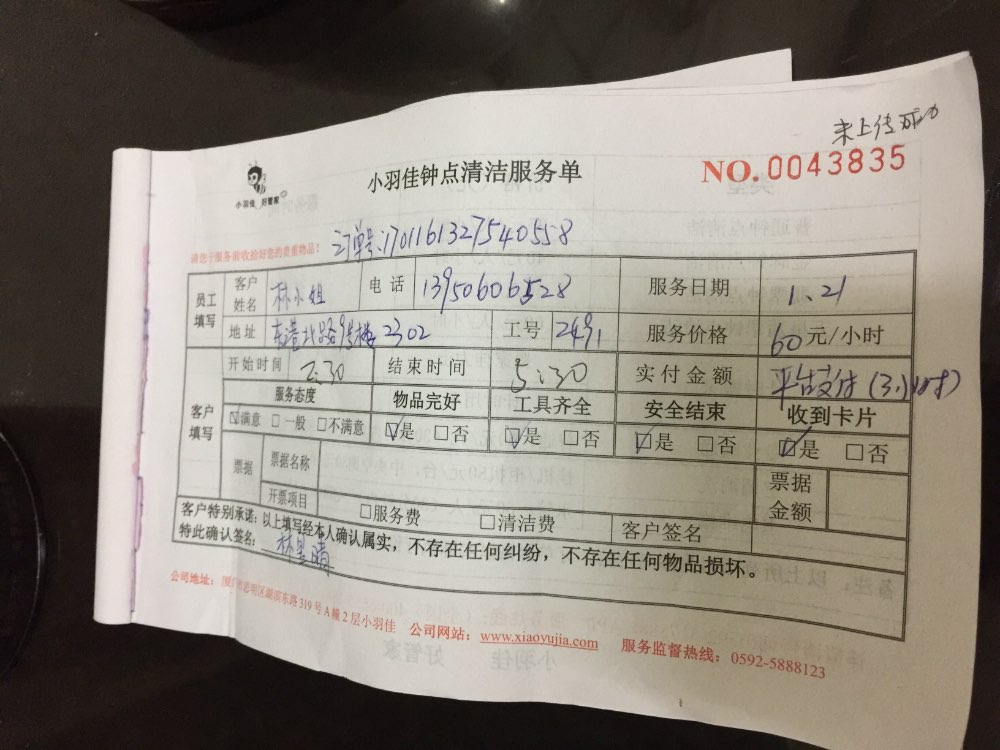 未上传成功
NO.0043835
小羽佳 好管家
小羽佳钟点清洁服务单
请您于服务前收拾好您的贵重物品! 订单号:1701161327540558
员工填写 客户姓名 林小姐 电话 13950606528 服务日期 1.21
地址 东港北路 号楼2302 工号 2491 服务价格 60元/小时
客户填写 开始时间 2:30 结束时间 5:30 实付金额 平台支付(3小时)
服务态度 物品完好 工具齐全 安全结束 收到卡片
☑满意 □一般 □不满意 ☑是 □否 ☑是 □否 ☑是 □否 ☑是 □否
票据 票据名称 票据金额
开票项目 □服务费 □清洁费 客户签名
客户特别承诺:以上填写经本人确认属实,不存在任何纠纷,不存在任何物品损坏。
特此确认签名: 林 晴
公司地址: 思明区湖滨东路319号A幢2层小羽佳 公司网站:www.xiaoyujia.com 服务监督热线:0592-5888123